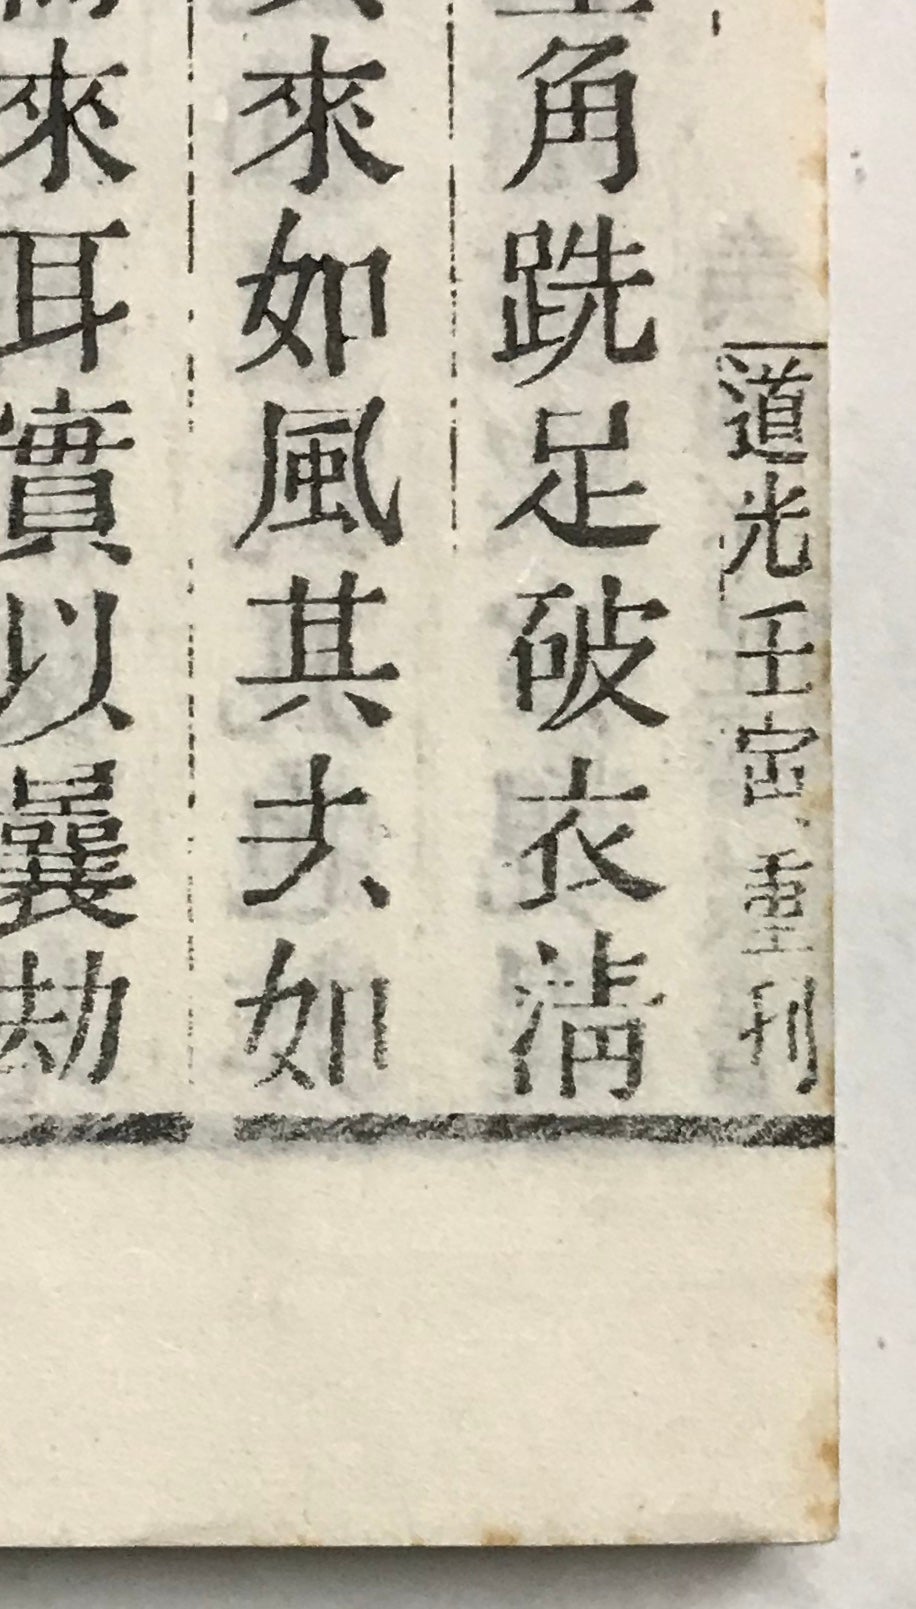 道光壬寅重刊
角跣足破衣淸
來如風其去如
來耳實以曩劫